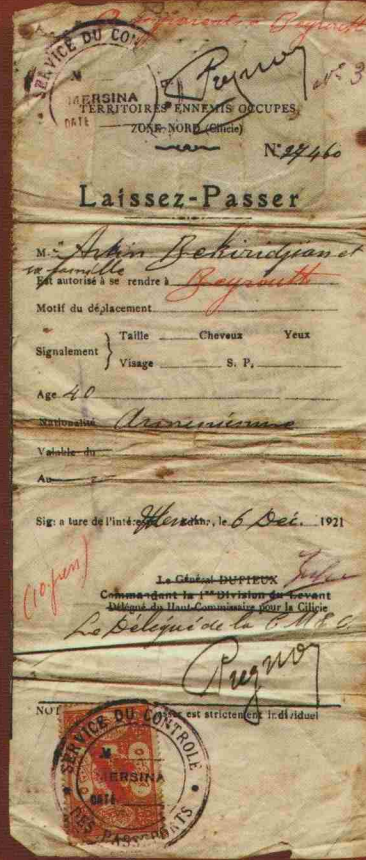 Beyrouth
SERVICE DU CON
MERSINA
DATE
No 3
TERRITOIRES ENNEMIS OCCUPES
ZONE NORD (Cilicie)
N° 27460
Laissez-Passer
M. Artin Bekiridjian et
sa famille
Est autorisé à se rendre à Beyrouth
Motif du déplacement
Signalement } Taille Cheveux Yeux
Visage S. P.
Age 40
Nationalité Arménienne
Valable du
Au
Sig: a ture de l'intére , le 6 Déc. 1921
Le Général DUFIEUX
Commandant la 1re Division du Levant
Délégué du Haut-Commissaire pour la Cilicie
Le Délégué de la
NOT asser est strictement individuel
SERVICE DU CONTROLE
MERSINA
DATE
DES PASSEPORTS